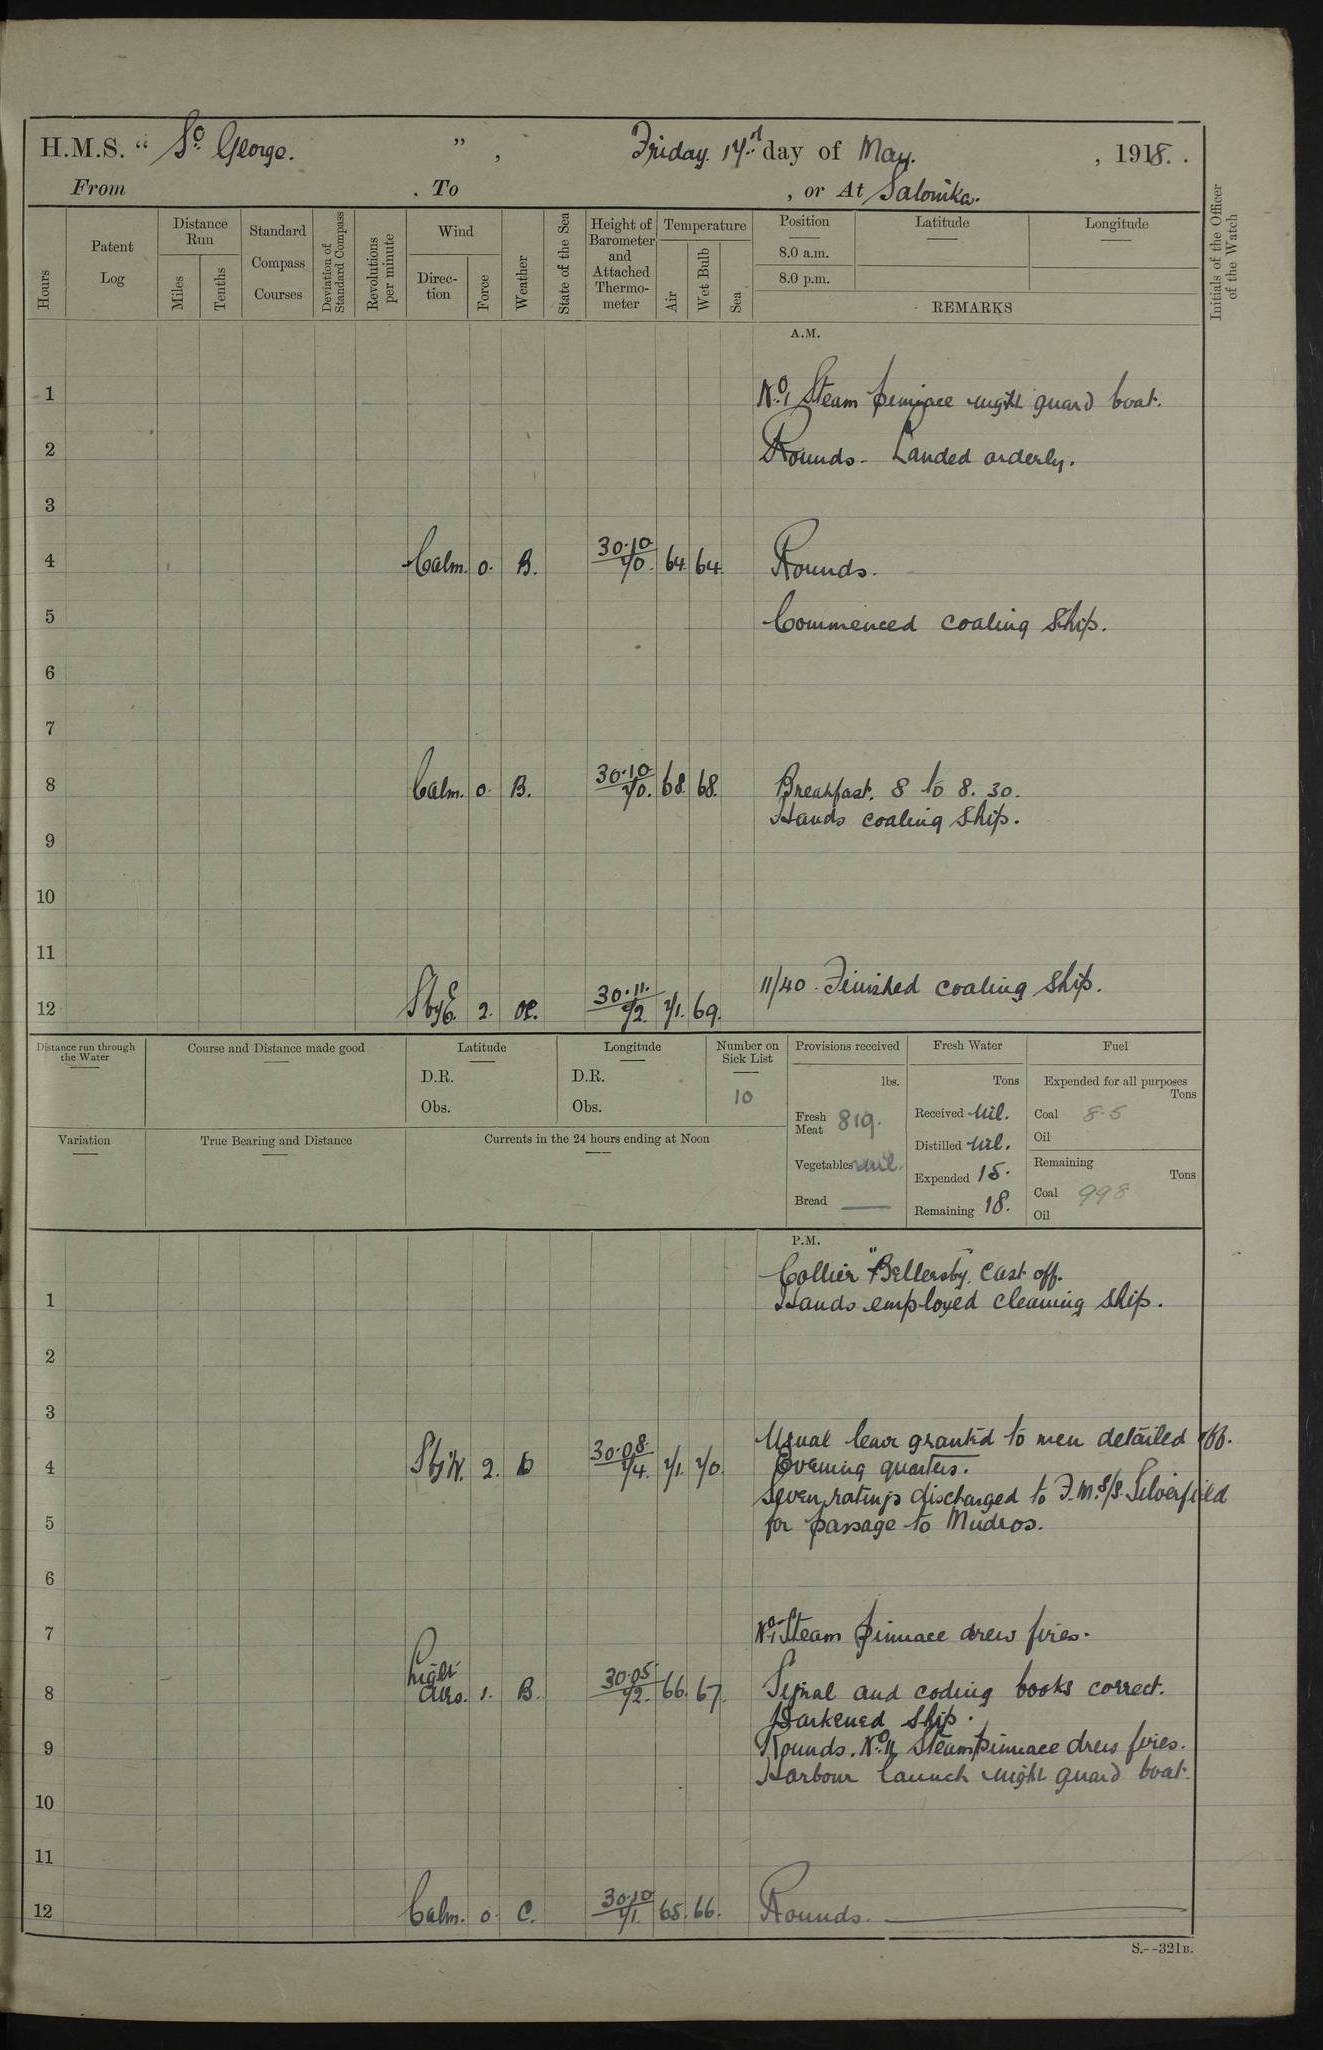 H.M.S. “ St. George. ” , Friday. 17th day of May. , 1918. .
From . To , or At Salonika.
Hours
Patent Log
Distance Run
Miles
Tenths
Standard Compass Courses
Deviation of Standard Compass
Revolutions per minute
Wind
Direction
Force
Weather
State of the Sea
Height of Barometer and Attached Thermometer
Temperature
Air
Wet Bulb
Sea
Position
8.0 a.m.
8.0 p.m.
Latitude
Longitude
REMARKS
Initials of the Officer of the Watch
A.M.
1 No. 1 Steam pinnace night guard boat.
2 Rounds - Landed orderly.
3
4 Calm. 0. B. 30.10 70. 64. 64. Rounds.
5 Commenced coaling ship.
6
7
8 Calm. 0. B. 30.10 70. 68. 68. Breakfast. 8 to 8.30.
Hands coaling ship.
9
10
11
12 SbyE. 2. 30.11. 72. 71. 69. 11/40. Finished coaling ship.
Distance run through the Water
Course and Distance made good
Latitude
D.R.
Obs.
Longitude
D.R.
Obs.
Number on Sick List
10
Provisions received
lbs.
Fresh Meat 819.
Vegetables nil.
Bread —
Fresh Water
Tons
Received Nil.
Distilled Nil.
Expended 15.
Remaining 18.
Fuel
Expended for all purposes
Tons
Coal 8.5
Oil
Remaining
Tons
Coal 998
Oil
Variation
True Bearing and Distance
Currents in the 24 hours ending at Noon
P.M.
Collier "Bellerby" cast off.
1 Hands employed cleaning ship.
2
3
Usual leave granted to men detailed off.
4 SbyW. 2. b 30.08. 74. 71. 70. Evening quarters.
Seven ratings discharged to F.M.S/S. Silverfield
5 for passage to Mudros.
6
7 No. 1 Steam pinnace drew fires.
8 Light airs. 1. B. 30.05 72. 66. 67. Signal and coding books correct.
Darkened ship.
9 Rounds. No. 11 Steam pinnace drew fires.
Harbour launch night guard boat.
10
11
12 Calm. 0. C. 30.10 71. 65. 66. Rounds.
S.--321B.